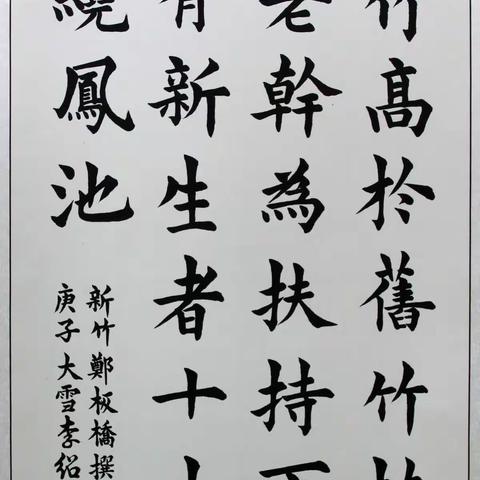 竹高於舊竹
老幹為扶持
有新生者十
繞鳳池
新竹鄭板橋撰
庚子大雪李紹